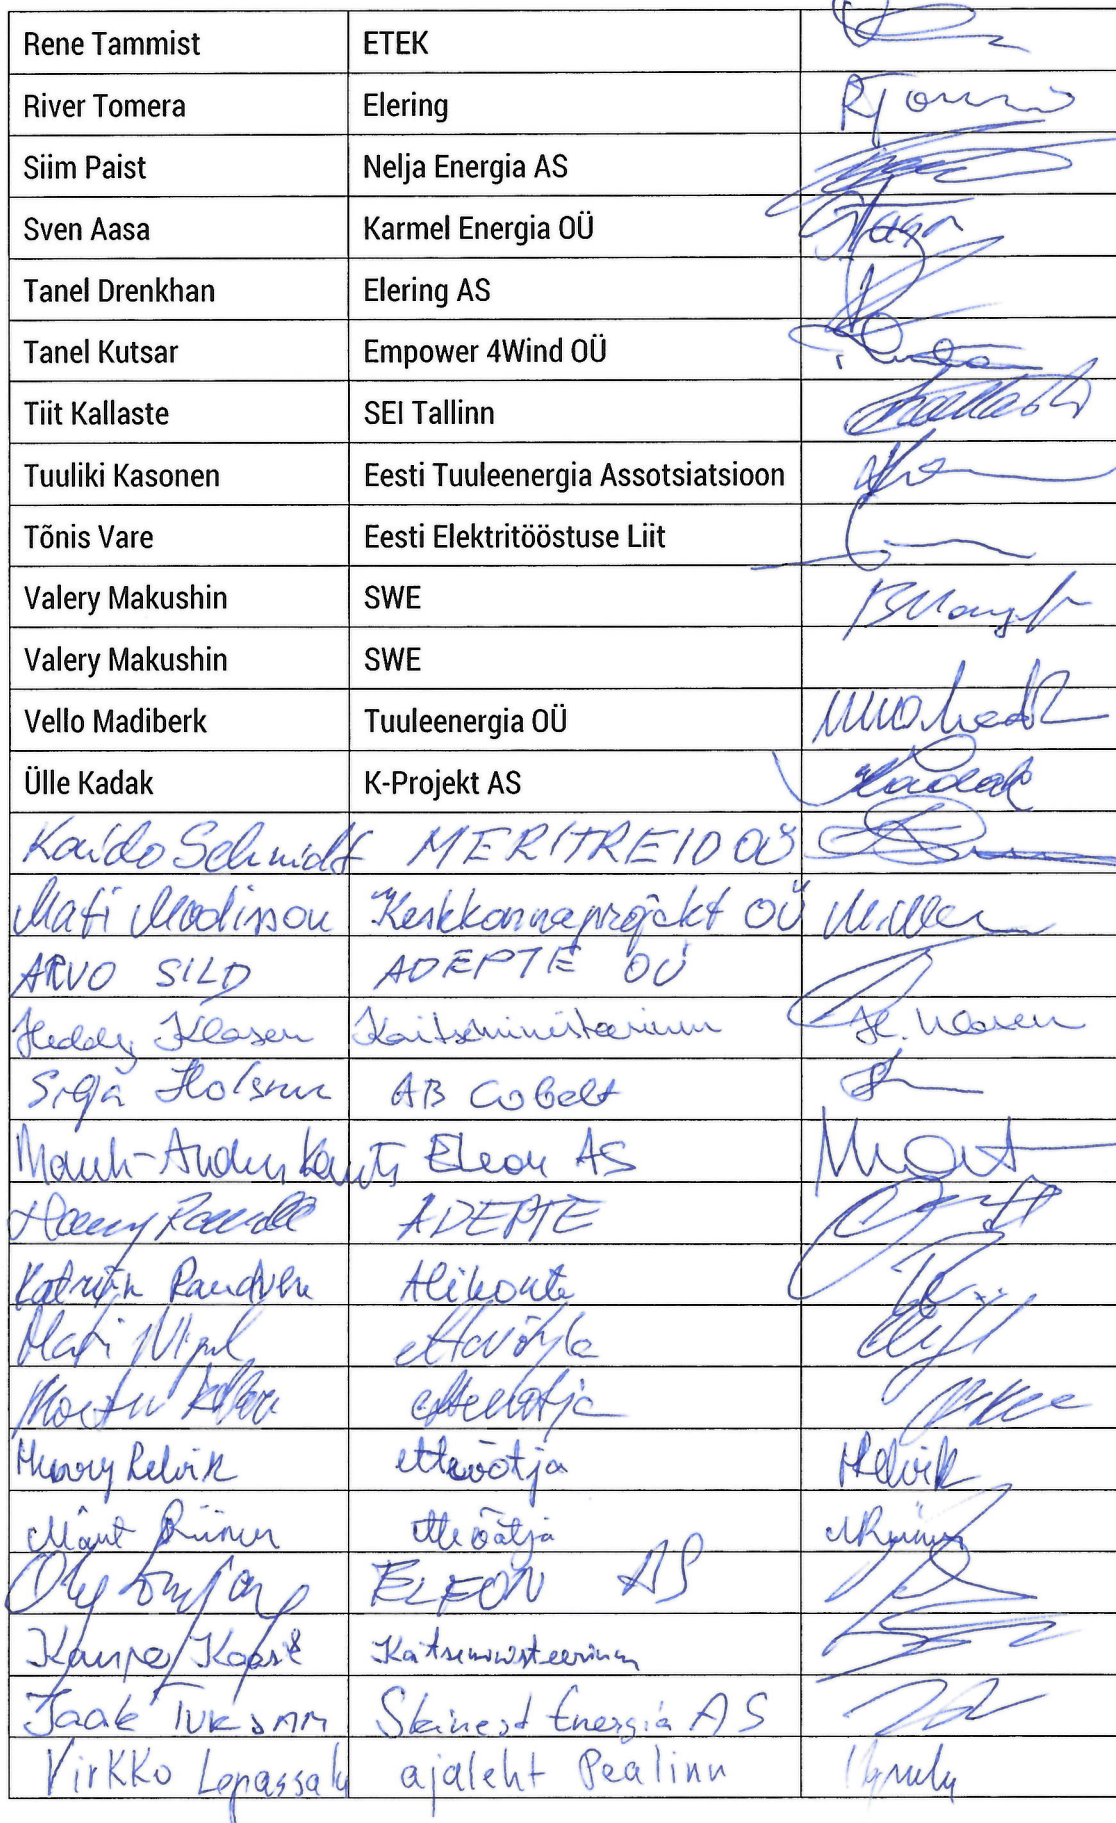 Rene Tammist ETEK
River Tomera Elering
Siim Paist Nelja Energia AS
Sven Aasa Karmel Energia OÜ
Tanel Drenkhan Elering AS
Tanel Kutsar Empower 4Wind OÜ
Tiit Kallaste SEI Tallinn
Tuuliki Kasonen Eesti Tuuleenergia Assotsiatsioon
Tõnis Vare Eesti Elektritööstuse Liit
Valery Makushin SWE
Valery Makushin SWE
Vello Madiberk Tuuleenergia OÜ
Ülle Kadak K-Projekt AS Kadak
Kaido Schmidt MERITREID OÜ
Mati Madisson Keskkonnaprojekt OÜ
ARVO SILD ADEPTE OÜ
Heddy Klasen Kaitseministeerium H. Klasen
AB Cobelt
Eleon AS
ADEPTE
Katrin Alikonte
Mati ettevõtja
ettevõtja
Henry Relvik ettevõtja HRelvik
Riinur ettevõtja
ELEON AS
Kaitseministeerium
Jaak TUKSAM Skinest Energia AS
VirKKo Lepassalu ajaleht Pealinn